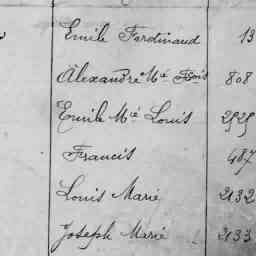 Emile Ferdinand 13
Alexandre Mie Fçois 808
Emile Mie Louis 2525
Francis 487
Louis Marie 2132
Joseph Marie 2133